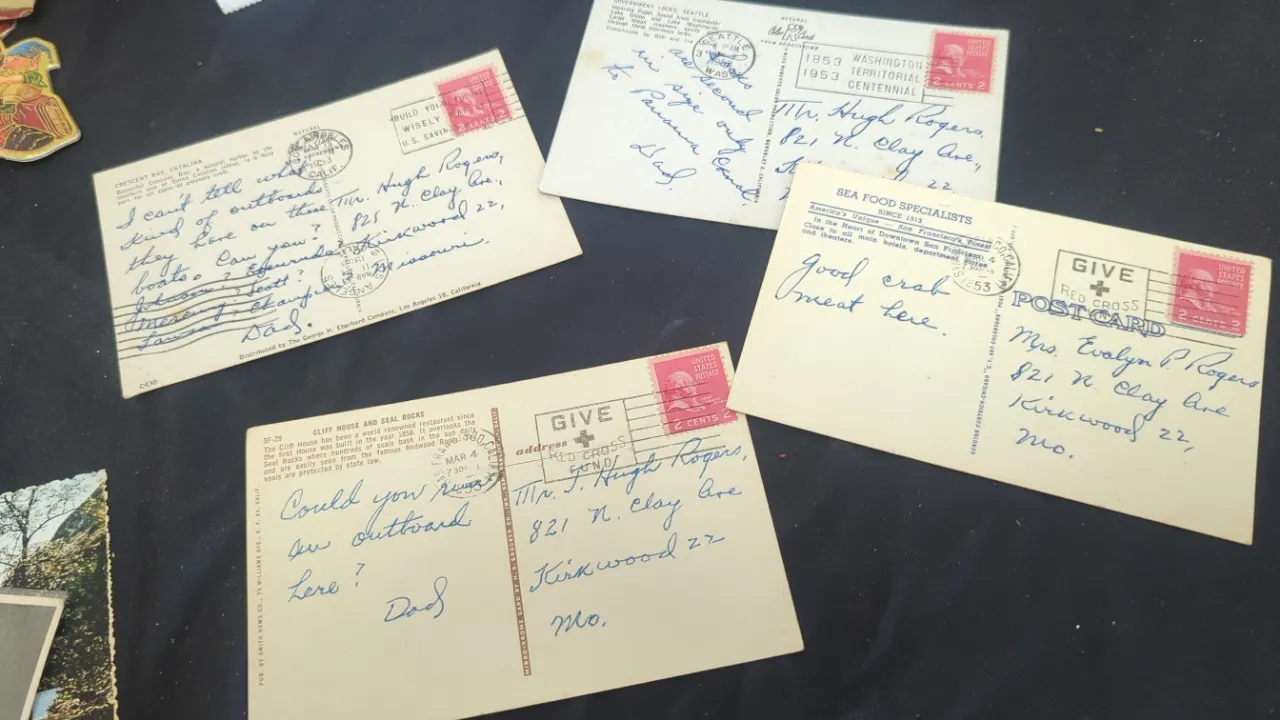 CRESCENT BAY, CATALINA
Beautiful Crescent Bay, a natural harbor on the
I can't tell what
kind of outboards
they have on these
boats. Can you?
Johnson? Scott?
Mercury? Champion
Dad.
C436
Distributed by The George H. Eberhard Company, Los Angeles 18, California
NATURAL
CALIF.
1953
BUILD YOUR
WISELY
U.S. SAVIN
UNITED STATES POSTAGE
2 CENTS 2
Mr. Hugh Rogers,
821 N. Clay Ave.,
Kirkwood 22,
Missouri.
GOVERNMENT LOCKS, SEATTLE
Locks
are second
in size only
to
Panama Canal.
Dad.
NATURAL
Color Card
FROM KODACHROME
SEATTLE
WASH
1853 WASHINGTON
TERRITORIAL
1953 CENTENNIAL
UNITED STATES POSTAGE
2 CENTS 2
Mr. Hugh Rogers.
821 N. Clay Ave.,
22,
SEA FOOD SPECIALISTS
SINCE 1913
America's Unique - San Francisco's Finest
In the Heart of Downtown San Francisco
Close to all main hotels, department stores
and theaters.
Good crab
meat here.
MAR 4
1953
GIVE
RED CROSS
POST CARD
UNITED STATES POSTAGE
2 CENTS 2
GENUINE CURTEICH-CHICAGO "C.T. ART-COLORTONE" POST
Mrs. Evalyn P. Rogers
821 N. Clay Ave
Kirkwood 22,
Mo.
S7-29
CLIFF HOUSE AND SEAL ROCKS
The Cliff House has been a world renowned restaurant since
the first House was built in the year 1858. It overlooks the
Seal Rocks where hundreds of seals bask in the sun daily
and are easily seen from the famous Redwood Room. The
seals are protected by state law.
Could you run
an outboard
here?
Dad
PUB. BY SMITH NEWS CO., 70 WILLIAMS AVE., S. F. 24, CALIF.
MAR 4
730
1953
address
GIVE
RED CROSS
FUND
UNITED STATES POSTAGE
2 CENTS 2
Mr. J. Hugh Rogers,
821 N. Clay Ave
Kirkwood 22
Mo.